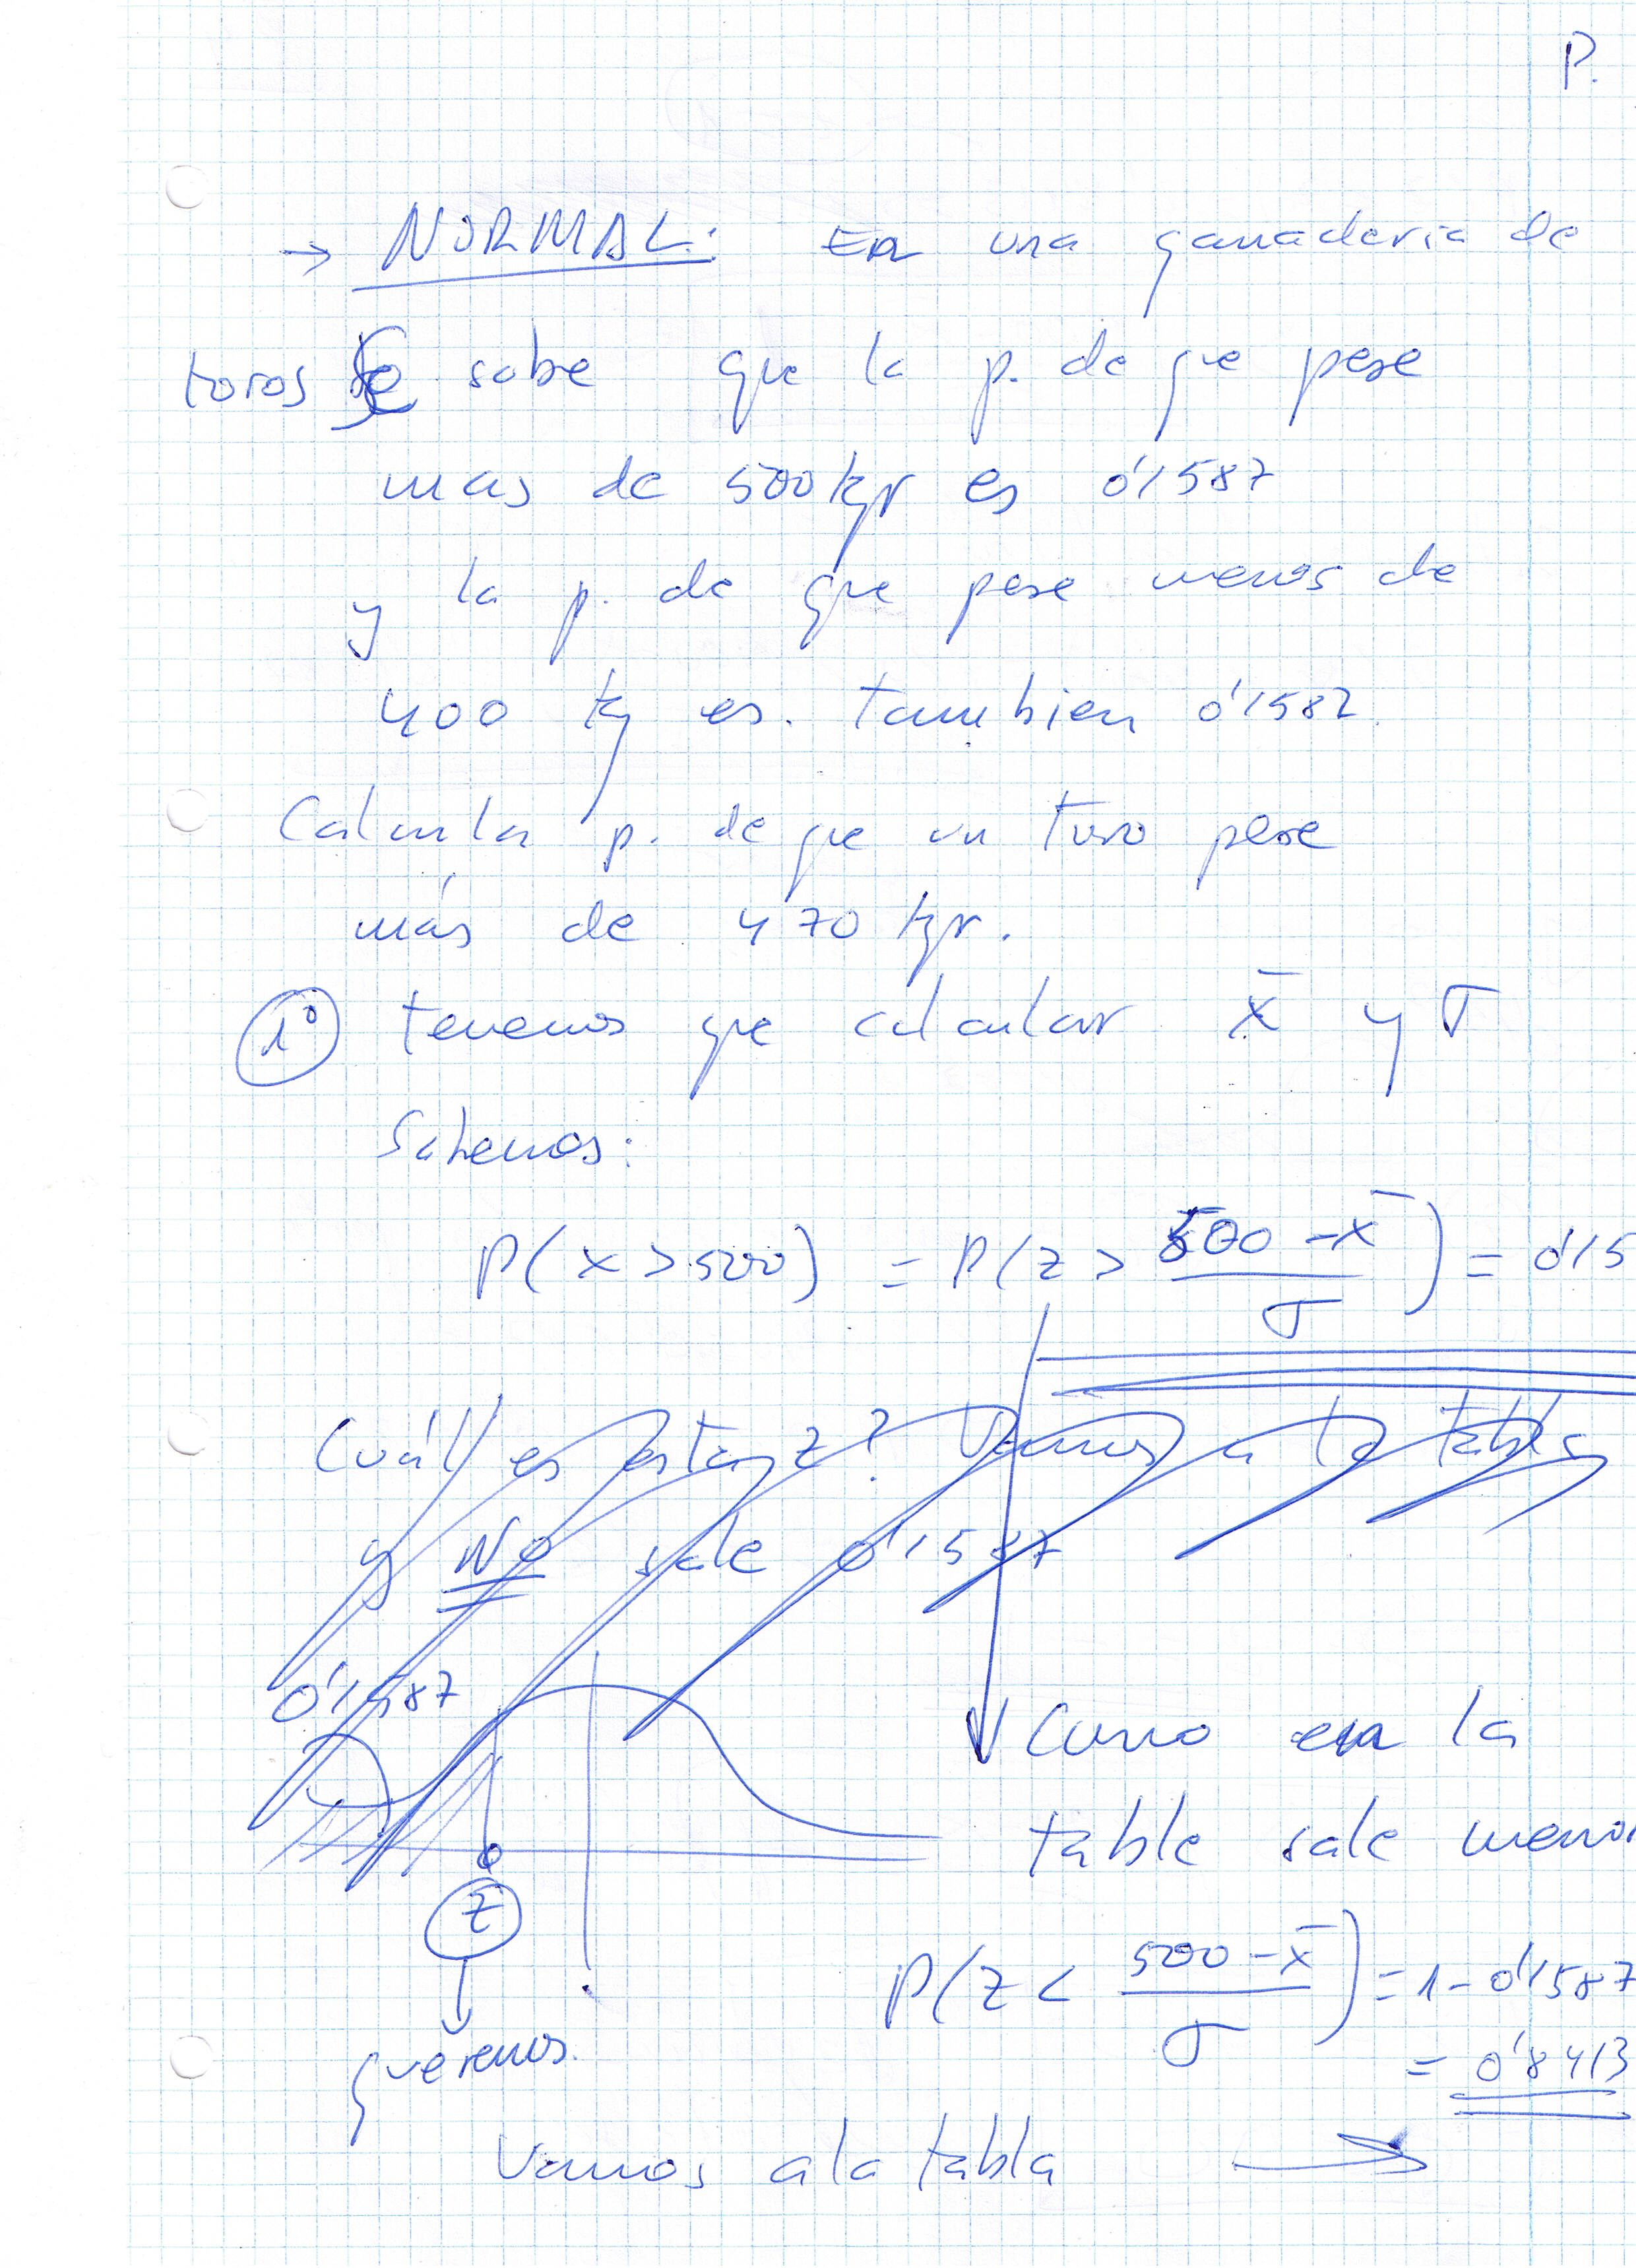 P.
→ NORMAL: En una ganaderia de
toros se sabe que la p. de que pese
mas de 500 kgr es 0'1587
y la p. de que pese menos de
400 kg es. tambien 0'1587.
Calcula p. de que un toro pese
más de 470 kgr.
1º tenemos que calcular x̄ y σ
Sabemos:
P(x > 500) = P(z > (500 - x̄)/σ) = 0'15
Cuál es esta z? Vamos a la tabla
y No sale 0'1587
0'1587
Como en la
tabla sale menor
z
P(z < (500 - x̄)/σ) = 1 - 0'1587
= 0'8413
queremos.
Vamos a la tabla →